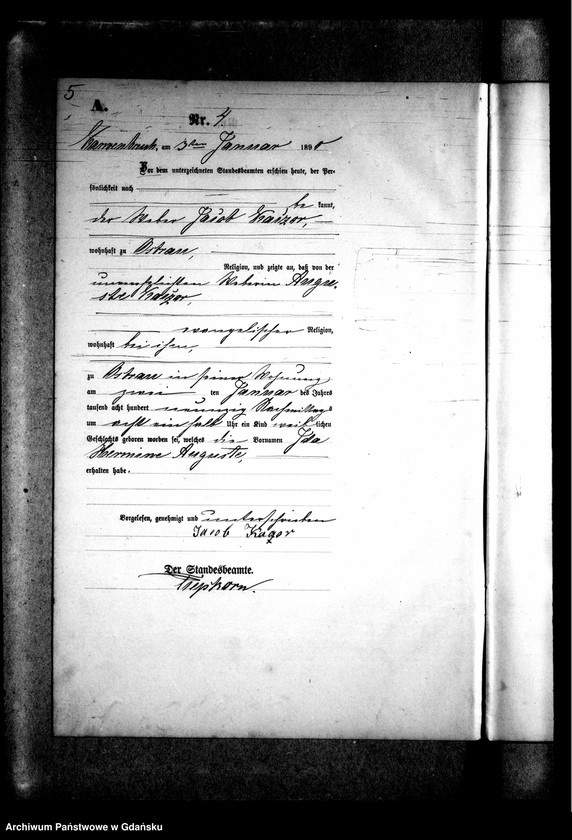 5
A.
Nr. 4.
Karwenbruch, am 3ten Januar 1890
Vor dem unterzeichneten Standesbeamten erschien heute, der Per-
sönlichkeit nach
be kannt,
der Weber Jacob Kaizor,
wohnhaft zu Ostrau,
Religion, und zeigte an, daß von der
unverehelichten Augu-
ste Kaizor,
evangelischer Religion,
wohnhaft bei ihm,
zu Ostrau in seiner Wohnung
am zwei ten Januar des Jahres
tausend acht hundert neunzig Nachmittags
um acht ein halb Uhr ein Kind weib lichen
Geschlechts geboren worden sei, welches die Vornamen Ida
Hermine Auguste,
erhalten habe.
Vorgelesen, genehmigt und unterschrieben
Jacob Kazor
Der Standesbeamte.
Archiwum Państwowe w Gdańsku